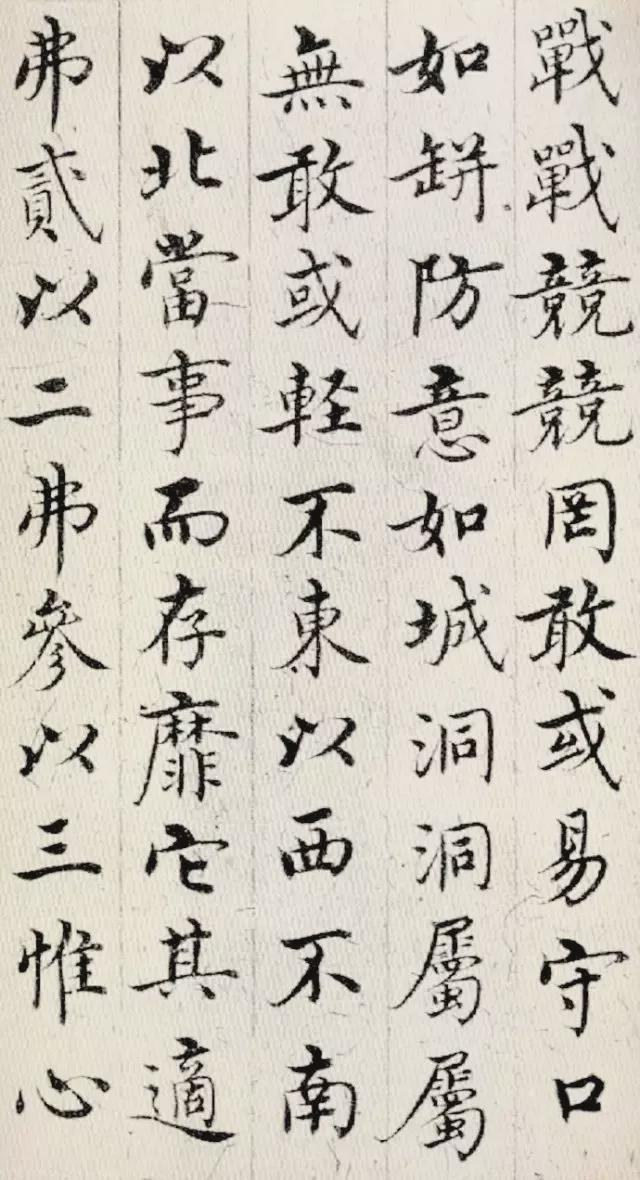 戰戰競競罔敢或易守口
如缾防意如城洞洞屬屬
無敢或軽不東以西不南
以北當事而存靡它其適
弗貳以二弗參以三惟心